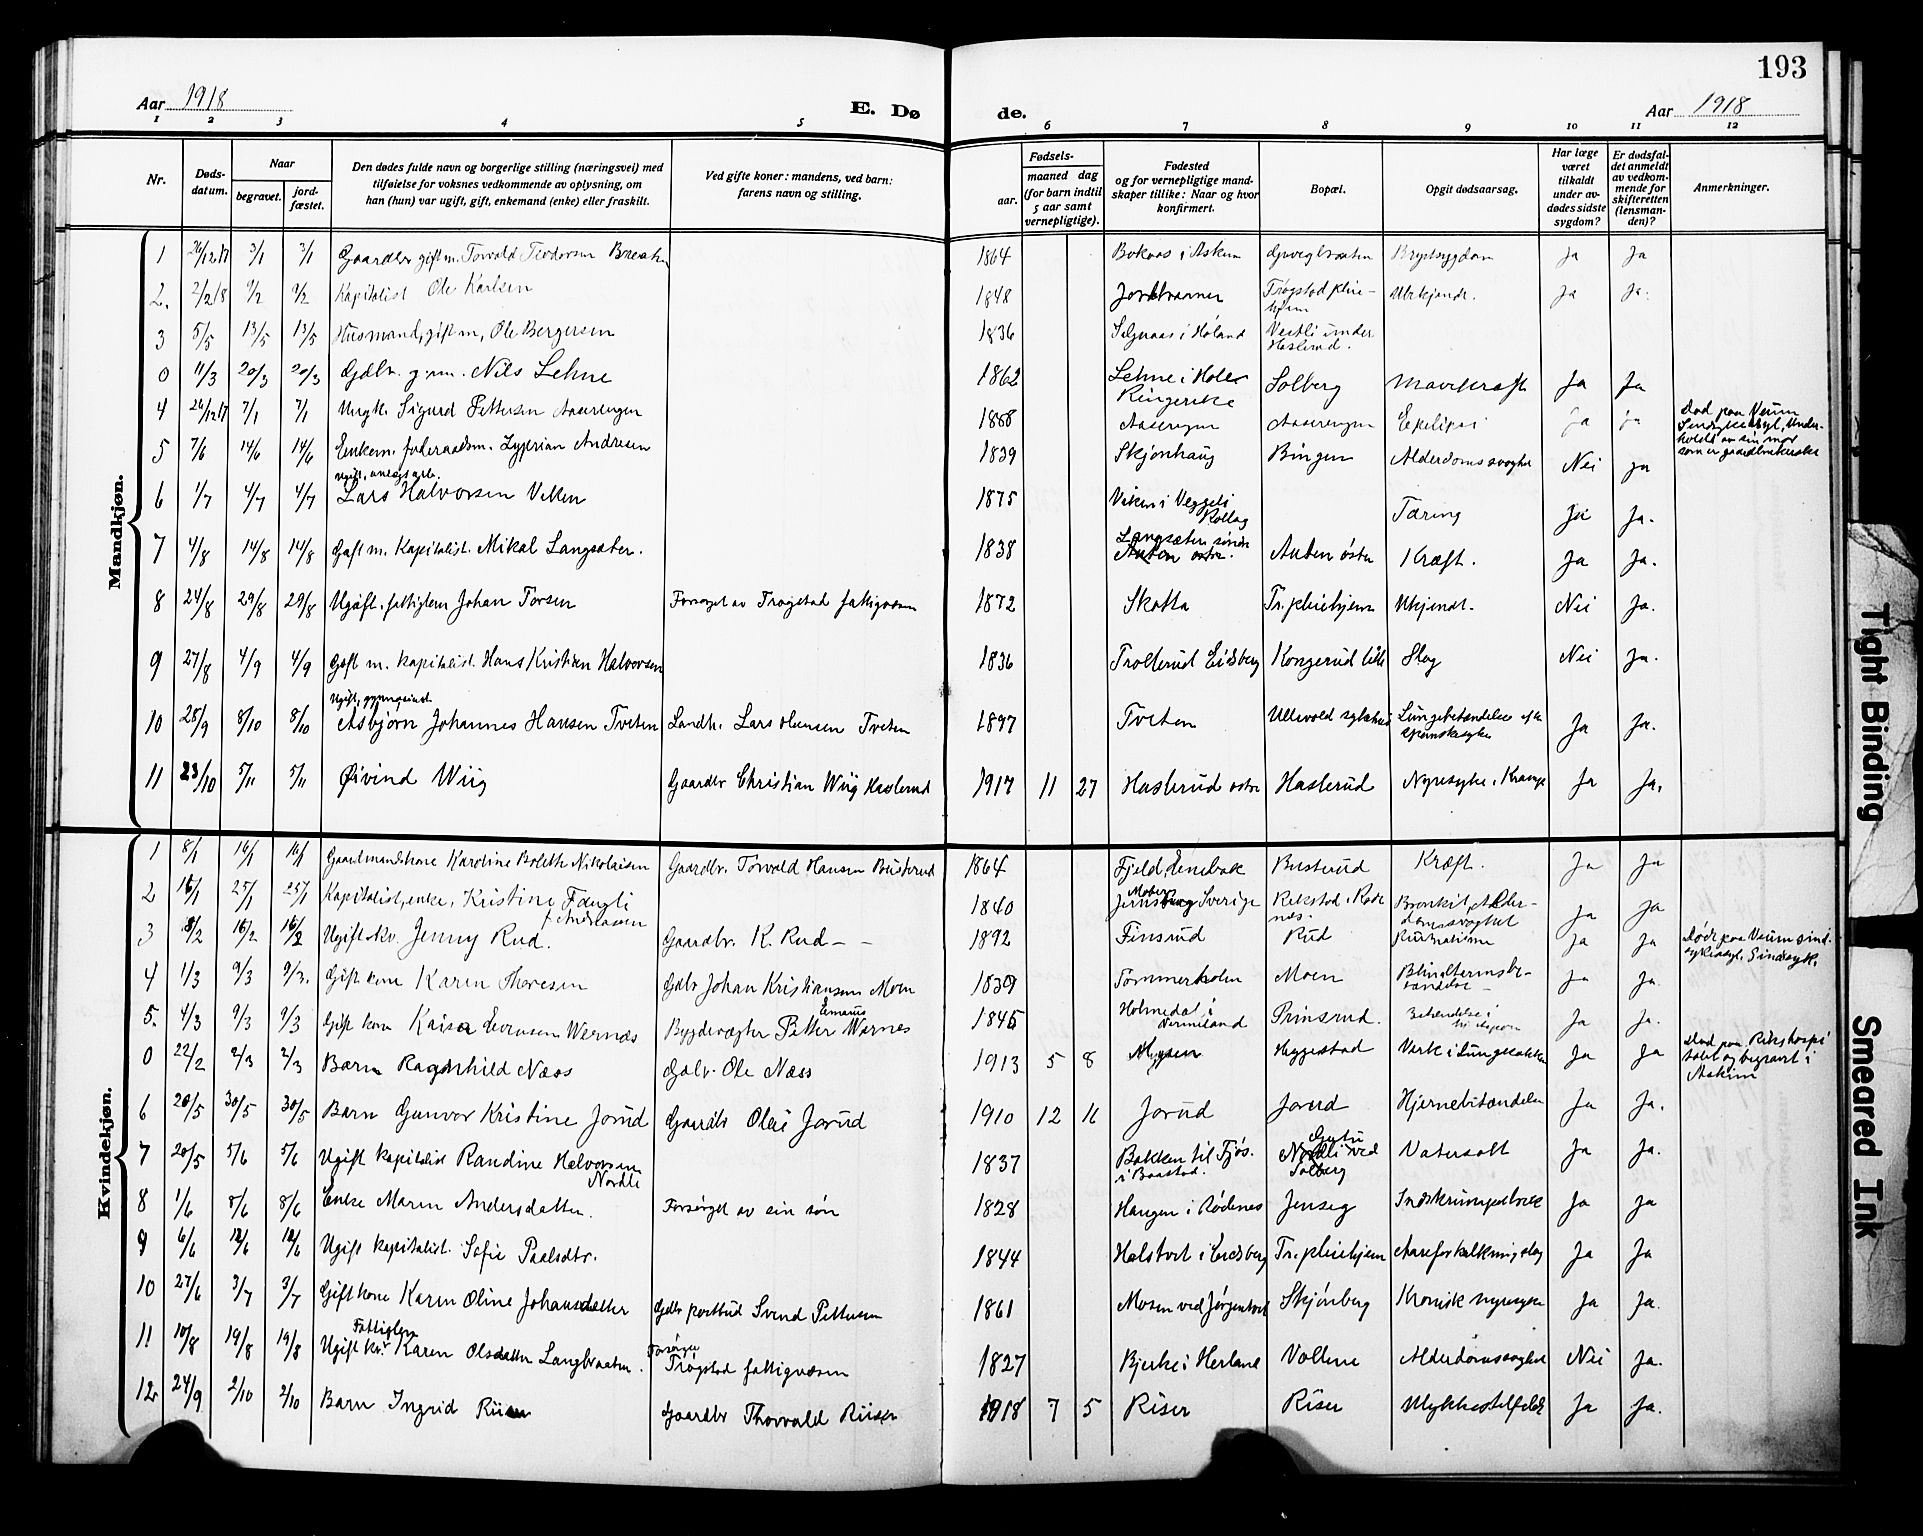 193
Aar 1918 E. Døde. Aar 1918
1 2 3 4 5 6 7 8 9 10 11 12
Nr. Døds-datum. Naar begravet. jord-fæstet. Den dødes fulde navn og borgerlige stilling (næringsvei) med tilføielse for voksnes vedkommende av oplysning, om han (hun) var ugift, gift, enkemand (enke) eller fraskilt. Ved gifte koner: mandens, ved barn: farens navn og stilling. Fødsels- aar. maaned dag (for barn indtil 5 aar samt vernepligtige). Fødested og for vernepligtige mand-skaper tillike: Naar og hvor konfirmert. Bopæl. Opgit dødsaarsag. Har læge været tilkaldt under av-dødes sidste sygdom? Er dødsfal-det anmeldt av vedkom-mende for skifteretten (lensman-den)? Anmerkninger.
Mandkjøn.
1 26/12 17 3/1 3/1 Gaardbr gift m. Torvald Teodorsen 1864 Askim Brystsygdom Ja Ja
2. 2/2 18 9/2 9/2 Kapitalist Ole Karlsen 1848 Trøgstad pleie-hjem Ukjendt. Ja Ja.
3 5/5 13/5 13/5 Husmand, gift m, Ole Bergersen 1836 i Høland Vestli under Haslerud.
0 11/3 20/3 20/3 Gdbr. g.m. Nils Lehne 1862 Lehne i Hole Ringerike Solberg Mavekræft Ja Ja
4 26/12 17 7/1 7/1 Ungk. Sigurd Pettersen Aaserengen 1888 Aaserengen Aaserengen Epilepsi ja ja Død paa Veum Sindsykeasyl, Under-holdt av sin mor som er gaardbrukerske
5 7/6 14/6 14/6 Enkem. føderaadsm. Zyprian Andresen 1839 Skjønhaug Bingen Alderdomssvaghet Nei ja
6 1/7 4/7 4/7 Ugift, anlegsarb. Lars Halvorsen Viken 1875 Viken i Veggeli Rollag Tæring Ja Ja.
7 4/8 14/8 14/8 Gift m. Kapitalist. Mikal Langsæter. 1838 Langsæter søndre Anten østre. Anten østre Kræft. Ja Ja.
8 24/8 29/8 29/8 Ugift. fattiglem Johan Torsen Forsørget av Trøgstad fattigvæsen 1872 Skotta Tr. pleiehjem Ukjendt. Nei Ja.
9 27/8 4/9 4/9 Gift m. kapitalist. Hans Kristian Halvorsen 1836 Trollerud Eidsberg Kongerud lille Slag Nei Ja.
10 28/9 8/10 8/10 Ugift, gymnasiast Asbjørn Johannes Hansen Tveten Landh. Lars Hansen Tveten 1897 Tveten Ullevold sykehus Lungebetændelse efter spanskesyke Ja Ja.
11 23/10 5/11 5/11 Øivind Wiig Gaardbr Christian Wiig Haslerud 1917 11 27 Haslerud østre Haslerud Nyresyke, Krampe Ja Ja.
Kvindekjøn.
1 8/1 16/1 16/1 Gaardmandskone Karoline Bolette Nikolaisen Gaardbr. Torvald Hansen Busterud 1864 Fjeld, Enebak Busterud Kræft. Ja Ja
2 16/1 25/1 25/1 Kapitalist, enke, Kristine Fangli f. Andreasen 1840 Sverige Rekstad i Røde-næs. Bronkit, Alder-domssvaghet Ja Ja
3 8/2 16/2 16/2 Ugift kv. Jenny Rud. Gaardbr. K. Rud - - 1892 Finsrud Rud Ja Ja Død paa Veum sind-sykeasyl. Sindssyk.
4 1/3 9/3 9/3. Gift kone Karen Thoresen Gdbr Johan Kristiansen Moen 1839 Tømmerholen Moen Blindtarmsbe-tændelse Ja Ja.
5. 4/3 9/3 9/3 Gift kone Kaisa Evensen Wernæs Bygdevægter Petter Emanus Wernes 1845 Holmedal i Vermeland Prinsrud. Betændelse i Ja Ja.
0 22/2 2/3 2/3 Barn Ragnhild Næss Gdbr. Ole Næss 1913 5 8 Mysen Heggestad Verk i Lungesækken Ja Ja Død paa Rikshospi-talet og begravet i Askim
6 20/5 30/5 30/5 Barn Gunvor Kristine Jorud Gaardbr Olai Jorud 1910 12 16 Jorud Jorud Hjernebetændelse Ja Ja.
7 20/5 5/6 5/6 Ugift kapitalist Randine Halvorsen Nordli 1837 Bakken til Fjøs. i Baastad. Nordli ved Solberg Vatersott Ja Ja.
8 1/6 8/6 8/6 Enke Maren Andersdatter. Forsørget av sin søn 1828 Haugen i Rødenes Jenseg Indskrumpet brok Ja Ja
9 6/6 12/6 12/6 Ugift kapitalist. Sofie Paalsdtr. 1844 Halstvet i Eidsberg Tr. pleiehjem Aareforkalkning slag Ja Ja
10 27/6 3/7 3/7 Gift kone Karen Oline Johansdatter Gdbr postbud Svend Pettersen 1861 Mosen ved Jørgentvet Skjønberg Kronisk nyresyke Ja Ja.
11 10/8 19/8 19/8 Fattiglem Ugift kv. Karen Olsdatter Langbraaten. Forsørges Trøgstad fattigvæsen 1827 Bjerke i Herland Vollene Alderdomssvaghet Nei Ja.
12. 24/9 2/10 2/10 Barn Ingrid Riiser Gaardbr Thorvald Riiser 1918 7 5 Riser Riser Ulykkestilfelde Ja Ja.
Tight Binding
Smeared Ink